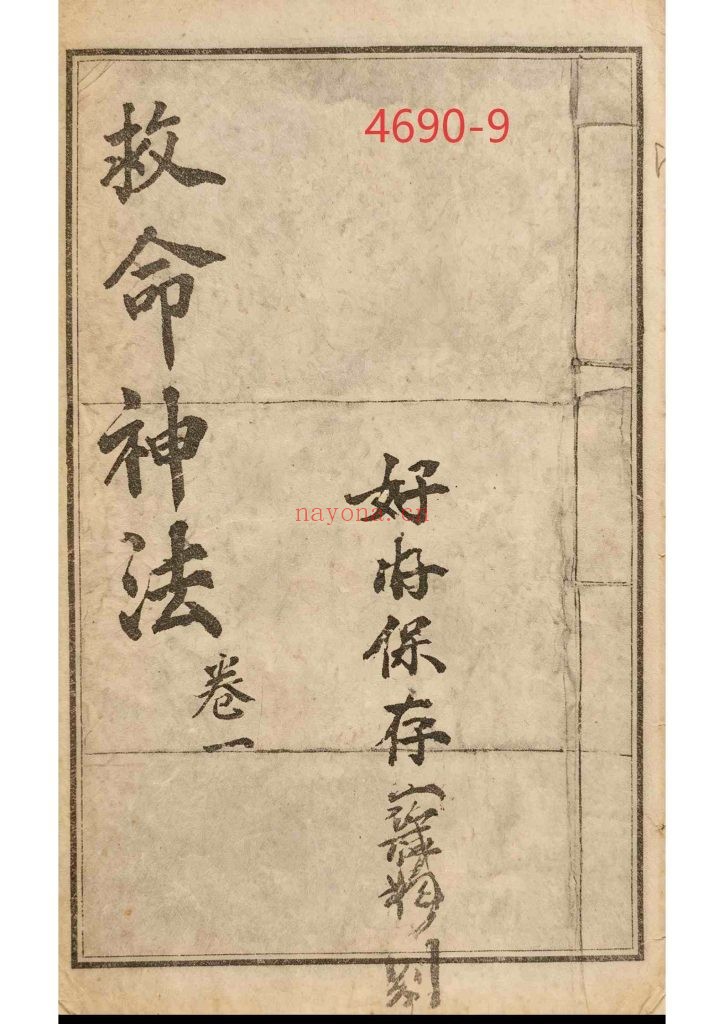 4690-9
救命神法
卷一
好好保存
nayona.cn